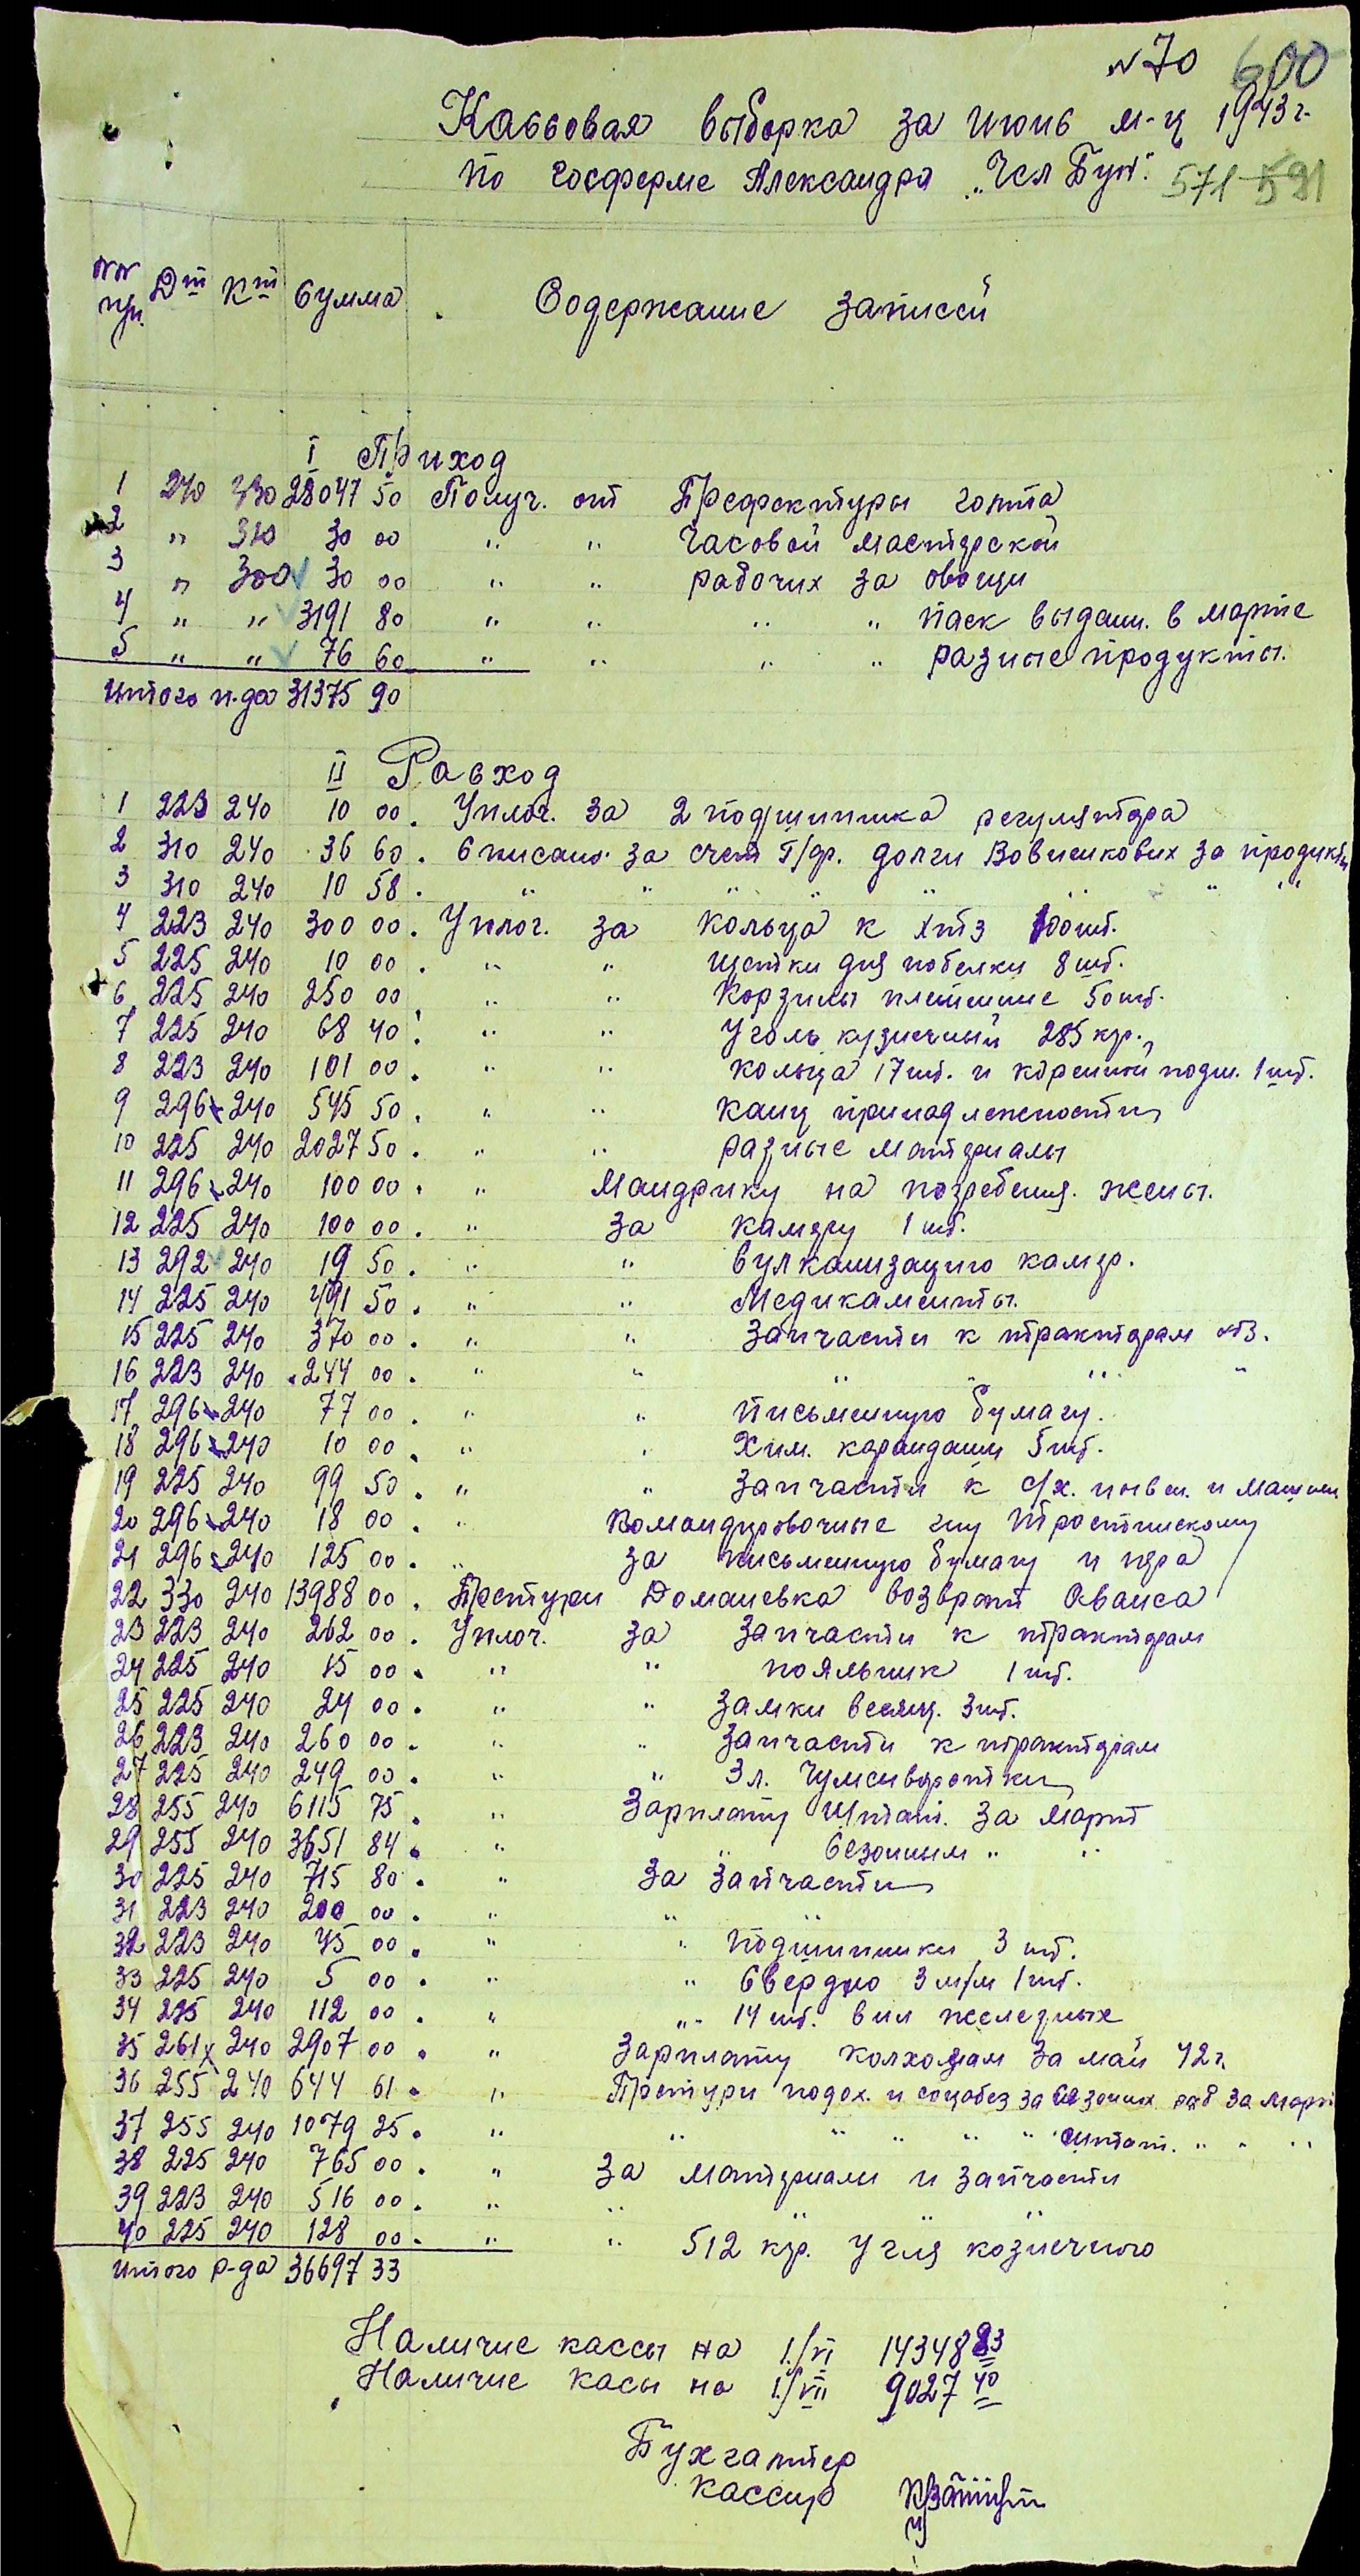 № 70 600
Кассовая выборка за июнь м-ц 1943 г.
по госферме Александра „Чел Бун". 571 591
№№ пп. Дт Кт Сумма Содержание записей
I Приход
1 240 330 28047 50 Получ. от Префектуры голта
2 " 310 30 00 " " часовой мастерской
3 " 300 30 00 " " рабочих за овощи
4 " " 3191 80 " " " " паек выдан. в марте
5 " " 76 60 " " " " разные продукты.
Итого п-да 31375 90
II Расход
1 223 240 10 00. Уплоч. за 2 подшипника регулятора
2 310 240 36 60. Списано за счет Г/ф. долги Вовченкових за продукты
3 310 240 10 58. " " " " " " " "
4 223 240 300 00. Уплоч. за кольца к ХТЗ 100 шт.
5 225 240 10 00. " " щетки для побелки 8 шт.
6 225 240 250 00 " " Корзины плетенные 50 шт.
7 225 240 68 40. " " Уголь кузнечный 285 кгр.
8 223 240 101 00. " " кольца 17 шт. и коренной подш. 1 шт.
9 296 240 545 50. " " канц принадлежности
10 225 240 2027 50. " " разные материалы
11 296 240 100 00. " Мандрику на погребения. жены.
12 225 240 100 00. " за камеру 1 шт.
13 292 240 19 50. " " вулканизацию камер.
14 225 240 491 50. " " Медикаменты.
15 225 240 370 00. " " запчасти к тракторам хтз.
16 223 240 244 00. " " " " "
17 296 240 77 00. " " письменную бумагу.
18 296 240 10 00. " " Хим. карандаши 5 шт.
19 225 240 99 50. " " запчасти к с/х. инвен. и машин
20 296 240 18 00. " Командировочные гну Тростинскому
21 296 240 125 00. " за письменную бумагу и пера
22 330 240 13988 00. Претури Доманевка возврат Аванса
23 223 240 262 00. Уплоч. за запчасти к тракторам
24 225 240 15 00. " " пояльник 1 шт.
25 225 240 24 00. " " замки весящ. 3 шт.
26 223 240 260 00. " " запчасти к тракторам
27 225 240 249 00. " " 3 л.
28 255 240 6115 75. " Зарплату штат. за март
29 255 240 3651 84. " " сезонным " "
30 225 240 715 80. " за запчасти
31 223 240 200 00. " " "
32 223 240 45 00. " " подшипники 3 шт.
33 225 240 5 00. " " свердло 3 м/м 1 шт.
34 225 240 112 00. " " 14 шт. вил железных
35 261 240 2907 00. " зарплату колхозам за май 42 г.
36 255 240 644 61. " Претури подох. и соцобез за сезоних раб за март
37 255 240 1079 25. " " " " " штат. " " "
38 225 240 765 00. " за материалы и запчасти
39 223 240 516 00. " " " "
40 225 240 128 00. " " 512 кгр. угля кознечного
Итого р-да 36697 33
Наличие кассы на 1/VI 14348 83
Наличие касы на 1/VII 9027 40
Бухгалтер
Кассир